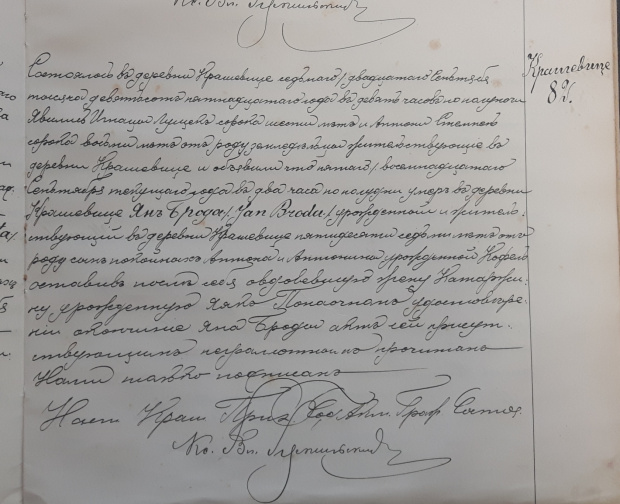 Кс. Вл.
Крашевице
84.
Состоялось въ деревни Крашевице седьмаго / двадцатаго Сентября
тысяча девятьсотъ пятнадцатаго года въ девять часовъ по полуночи
Явились Игнаций сорока шести лѣтъ и Антони
сорока восьми лѣтъ отъ роду земледѣльцы жительствующие въ
деревни Крашевице и объявили что пятаго / восемнадцатаго
Сентября текущаго года въ два часа по полудни умеръ въ деревни
Крашевице Янъ Брода / Jan Broda / урожденный и жител-
ствующий въ деревни Крашевице пятидесяти седьми лѣтъ отъ
роду сынъ покойныхъ Антона и Антонины урожденной
оставивъ послѣ себя овдовѣвшую жену Катаржи-
ну урожденную По настоячномъ удостовѣре-
нии о кончинѣ Яна Броды актъ сей присут-
ствующимъ неграмотнымъ прочитанъ
Нами только подписанъ
Наст Краш Прих Сод Акты Граж Сост.
Кс. Вл.